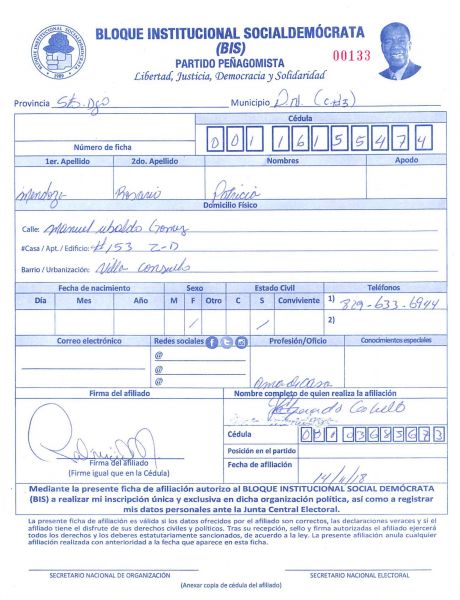 BLOQUE INSTITUCIONAL SOCIALDEMÓCRATA
(BIS)
PARTIDO PEÑAGOMISTA
Libertad, Justicia, Democracia y Solidaridad
00133
BLOQUE INSTITUCIONAL SOCIALDEMOCRATA
Provincia Sto Dgo Municipio D.N. (C#3)
Cédula
Número de ficha 001 1615547 4
1er. Apellido 2do. Apellido Nombres Apodo
Mendoza Rosario Patricia
Domicilio Físico
Calle: Manuel Ubaldo Gomez
#Casa / Apt. / Edificio: #153 2-D
Barrio / Urbanización: Villa Consuelo
Fecha de nacimiento Sexo Estado Civil Teléfonos
Día Mes Año M F Otro C S Conviviente 1) 829-633-6944
/ / 2)
Correo electrónico Redes sociales Profesión/Oficio Conocimientos especiales
@
@
@ Ama de Casa
Firma del afiliado Nombre completo de quien realiza la afiliación
Cédula 001 0368567 3
Posición en el partido
Firma del afiliado
(Firme igual que en la Cédula)
Fecha de afiliación 14/11/18
Mediante la presente ficha de afiliación autorizo al BLOQUE INSTITUCIONAL SOCIAL DEMÓCRATA
(BIS) a realizar mi inscripción única y exclusiva en dicha organización política, así como a registrar
mis datos personales ante la Junta Central Electoral.
La presente ficha de afiliación es válida si los datos ofrecidos por el afiliado son correctos, las declaraciones veraces y si el
afiliado tiene el disfrute de sus derechos civiles y políticos. Tras su recepción, sello y firma autorizadas el afiliado ejercerá
todos los derechos y los deberes estatutariamente sancionados, de acuerdo a la ley. La presente afiliación anula cualquier
afiliación realizada con anterioridad a la fecha que aparece en esta ficha.
SECRETARIO NACIONAL DE ORGANIZACIÓN SECRETARIO NACIONAL ELECTORAL
(Anexar copia de cédula del afiliado)